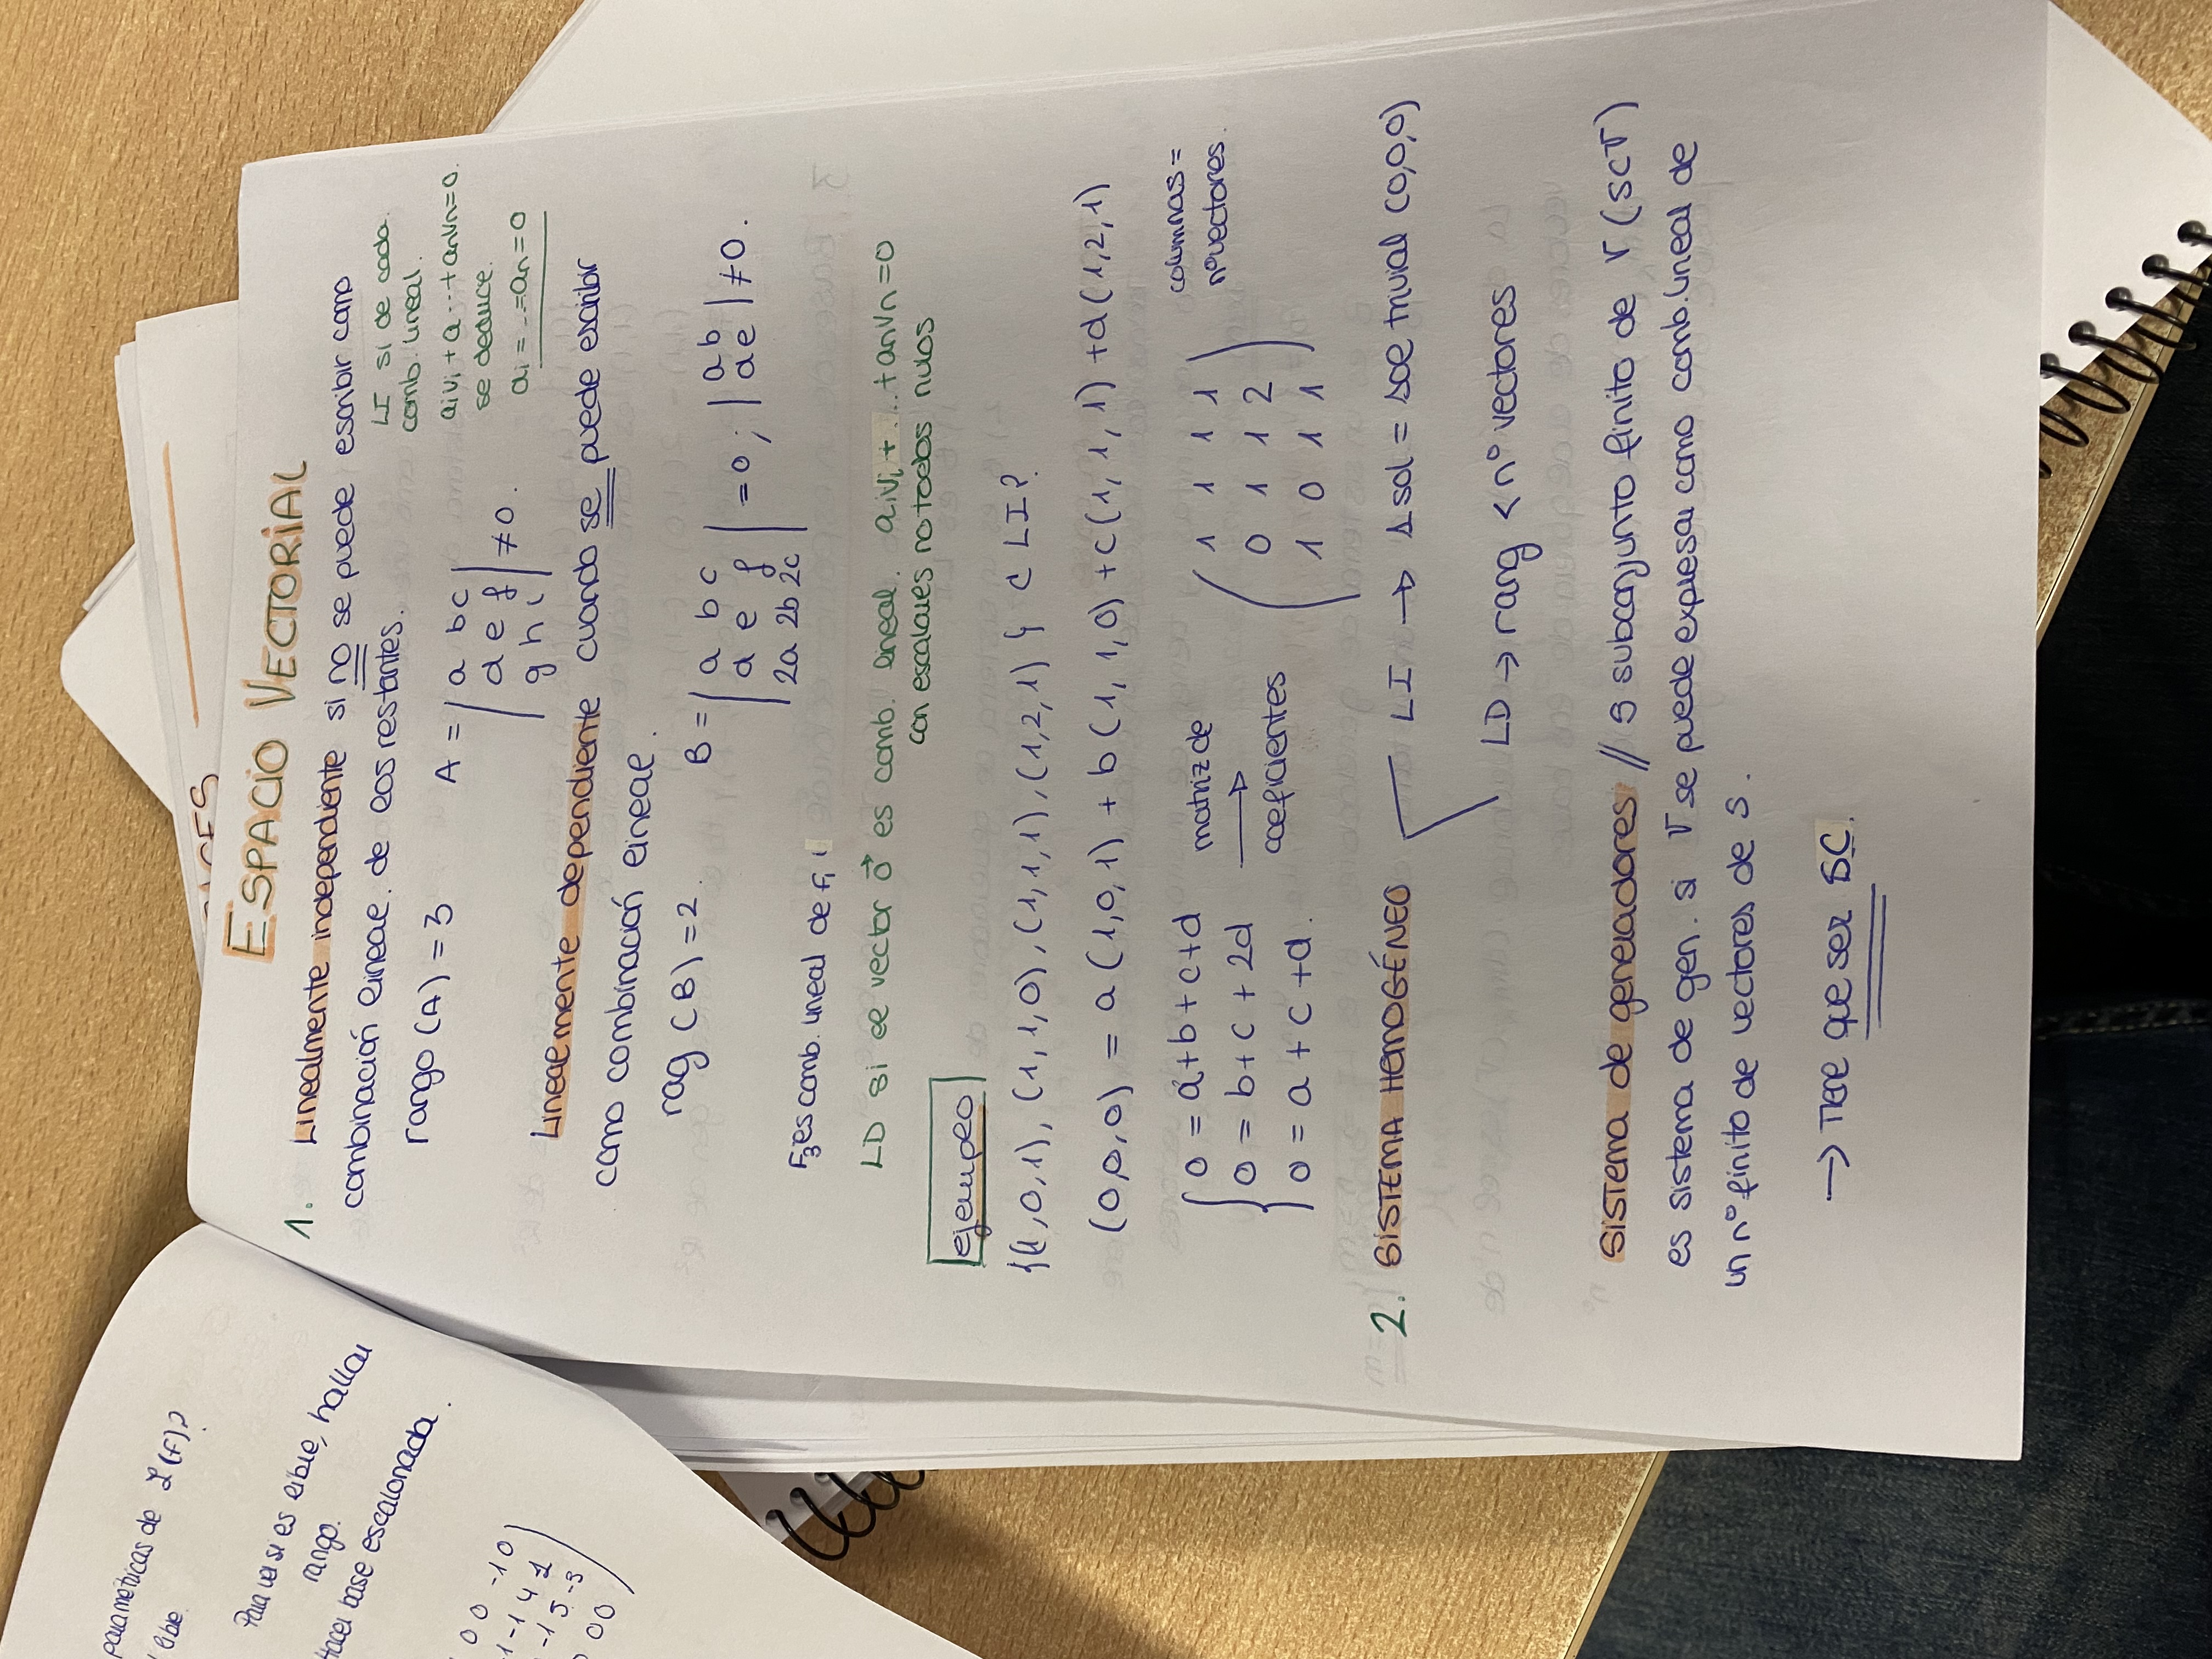 parametricas de L(f)?
libre.
Para ver si es libre, hallar
rango.
Hacer base escalonada.
0 0 -1 0
-1 -1 4 2
-1 5 -3
0 0 0
ESPACIO VECTORIAL
1. Linealmente independiente si no se puede escribir como
combinación lineal. de los restantes.
LI si de cada.
comb. lineal.
a₁v₁ + a ... + anvn = 0.
se deduce.
a₁ = ... = an = 0
rango (A) = 3
A = | a b c
d e f
g h i | ≠ 0.
Linealmente dependiente cuando se puede escribir
como combinación lineal.
rag (B) = 2.
B = | a b c
d e f
2a 2b 2c | = 0 ; | a b
d e | ≠ 0.
F₃ es comb. lineal de F₁
LD si el vector 0⃗ es comb. lineal. a₁v₁ + ... + anvn = 0
con escalares no todos nulos
ejemplo
{(1,0,1), (1,1,0), (1,1,1), (1,2,1)} ¿ LI?
(0,0,0) = a(1,0,1) + b(1,1,0) + c(1,1,1) + d(1,2,1)
0 = a+b+c+d
0 = b+c+2d
0 = a+c+d.
matriz de
coeficientes
1 1 1 1
0 1 1 2
1 0 1 1
columnas =
nº vectores.
2. SISTEMA HOMOGÉNEO
LI → 1 sol = sol trivial (0,0,0)
LD → rang < nº vectores
Sistema de generadores // S subconjunto finito de V (S⊂V)
es sistema de gen. si V se puede expresar como comb. lineal de
un nº finito de vectores de S.
→ Tiene que ser SC.